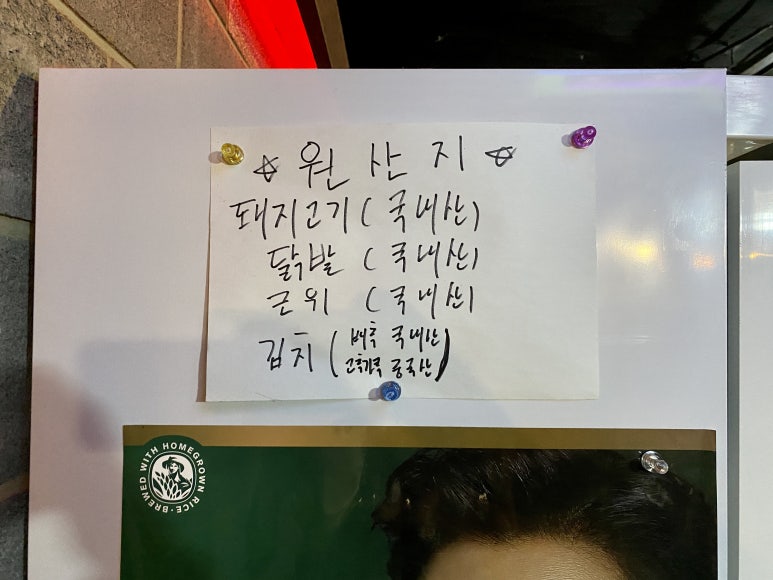 ☆ 원산지 ☆
돼지고기 (국내산)
닭발 (국내산)
근위 (국내산)
김치 (배추 국내산
고추가루 중국산)
BREWED WITH HOMEGROWN RICE